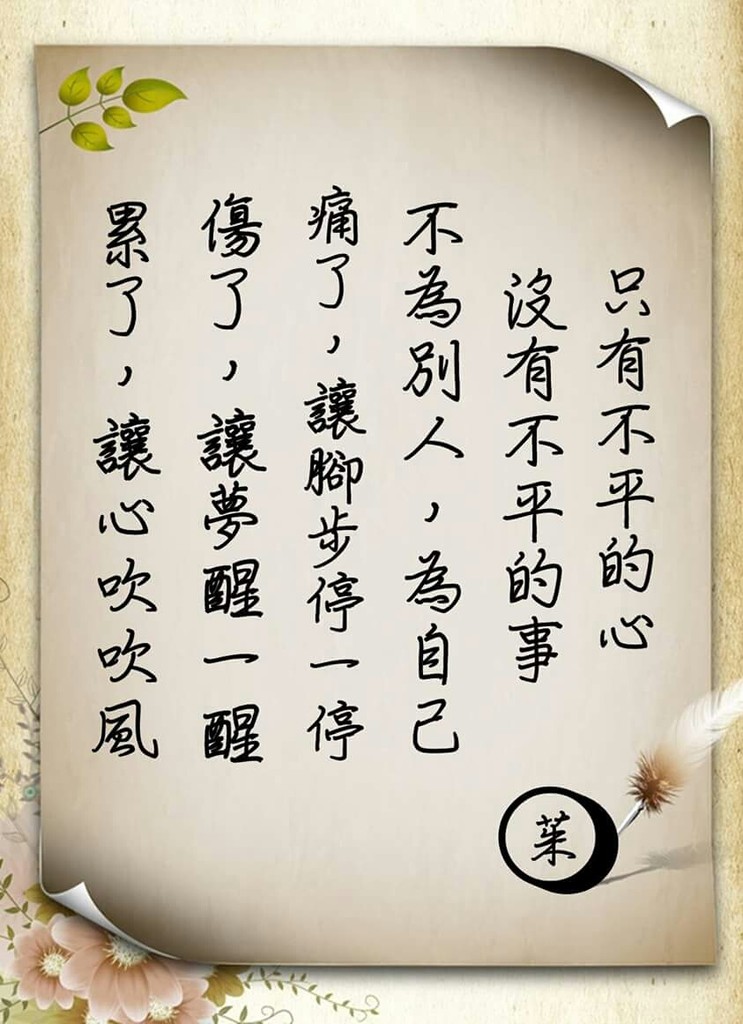 只有不平的心
沒有不平的事
不為別人，為自己
痛了，讓腳步停一停
傷了，讓夢醒一醒
累了，讓心吹吹風